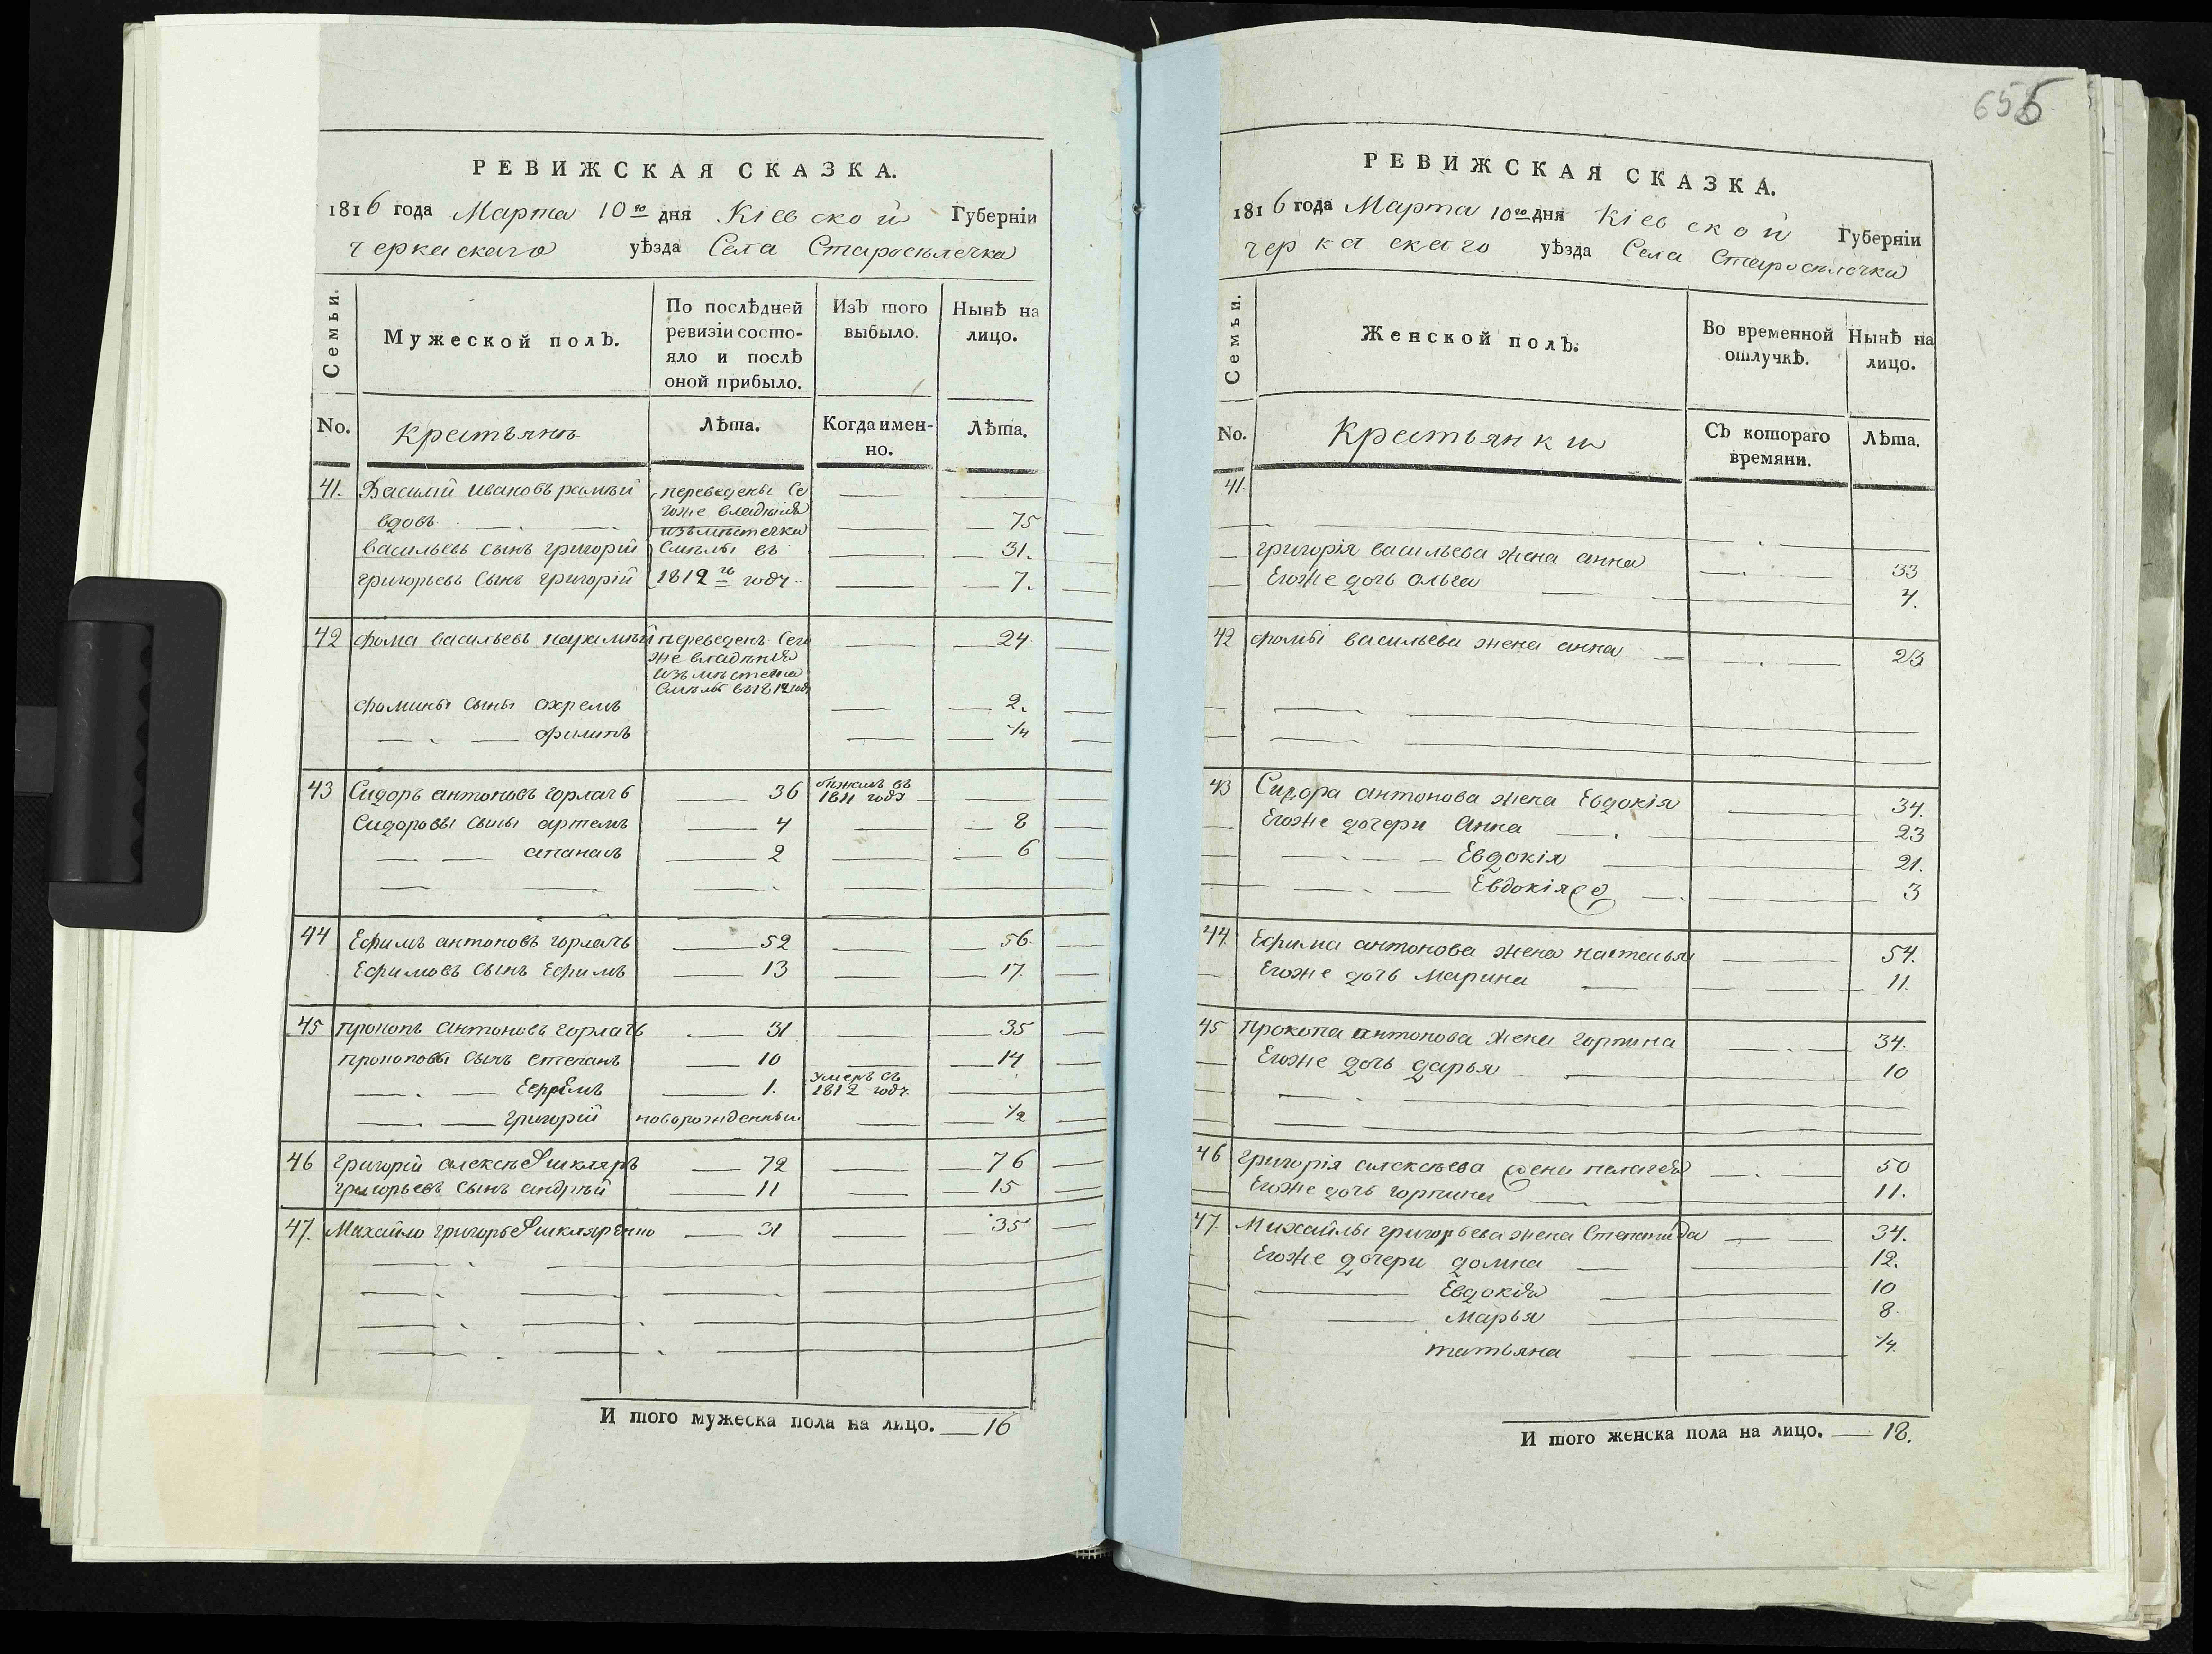 РЕВИЖСКАЯ СКАЗКА.
1816 года Марта 10го дня Кіевской Губерніи
черкаскаго уѣзда Села Старосѣлечка
Семьи.
Мужеской полЪ.
По послѣдней ревизіи состояло и послѣ оной прибыло.
ИзЪ того выбыло.
Нынѣ на лицо.
No. Крестьянъ Лѣта. Когда именно. Лѣта.
41. Василій Ивановъ переведены Се
гоже владѣнія
вдовъ 75
изъ мѣстечка
васильевъ сынъ григорій Смѣлы въ 31.
григорьевъ сынъ григорій 1812го году 7.
42 фома васильевъ переведенъ Сего 24
же владѣнія
изъ мѣстечка
Смѣлы въ 1812 году
фомины сыны 2.
филипъ 1/4
43 Сидоръ антоновъ горлачь 36 бѣжалъ въ
1811 году
Сидоровы сыны артемъ 4 8
апанасъ 2 6
44 Ефимъ антоновъ горлачь 52 56.
Ефимовъ сынъ Ефимъ 13 17.
45 прокопъ антоновъ горлачь 31 35
прокоповы сынъ степанъ 10 14
Ефремъ 1. умеръ въ
1812 году
григорій новорожденный 1/2
46 григорій алексѣевъ шкляръ 72 76
григорьевъ сынъ андрѣй 11 15
47. Михайло григорьевъ шкляренко 31 35
И того мужеска пола на лицо. 16
655
РЕВИЖСКАЯ СКАЗКА.
1816 года Марта 10го дня Кіевской Губерніи
черкаскаго уѣзда Села Старосѣлечка
Семьи.
Женской полЪ.
Во временной отлучкѣ.
Нынѣ на лицо.
No. Крестьянки СЪ котораго времяни. Лѣта.
41.
григорія васильева жена анна 33
Егоже дочь ольга 4.
42 фомы васильева жена анна 23
43 Сидора антонова жена Евдокія 34.
Егоже дочери анна 23
Евдокія 21.
Евдокія 3
44. Ефима антонова жена настасья 54.
Егоже дочь марина 11.
45 прокопа антонова жена горпина 34.
Егоже дочь дарья 10
46 григорія алексѣева жена пелагея 50
Егоже дочь горпина 11.
47. Михайлы григорьева жена Степанида 34.
Егоже дочери домна 12.
Евдокія 10
марья 8.
татьяна 1/4
И того женска пола на лицо. 18.